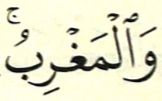 وَٱلْمَغْرِبُۚ